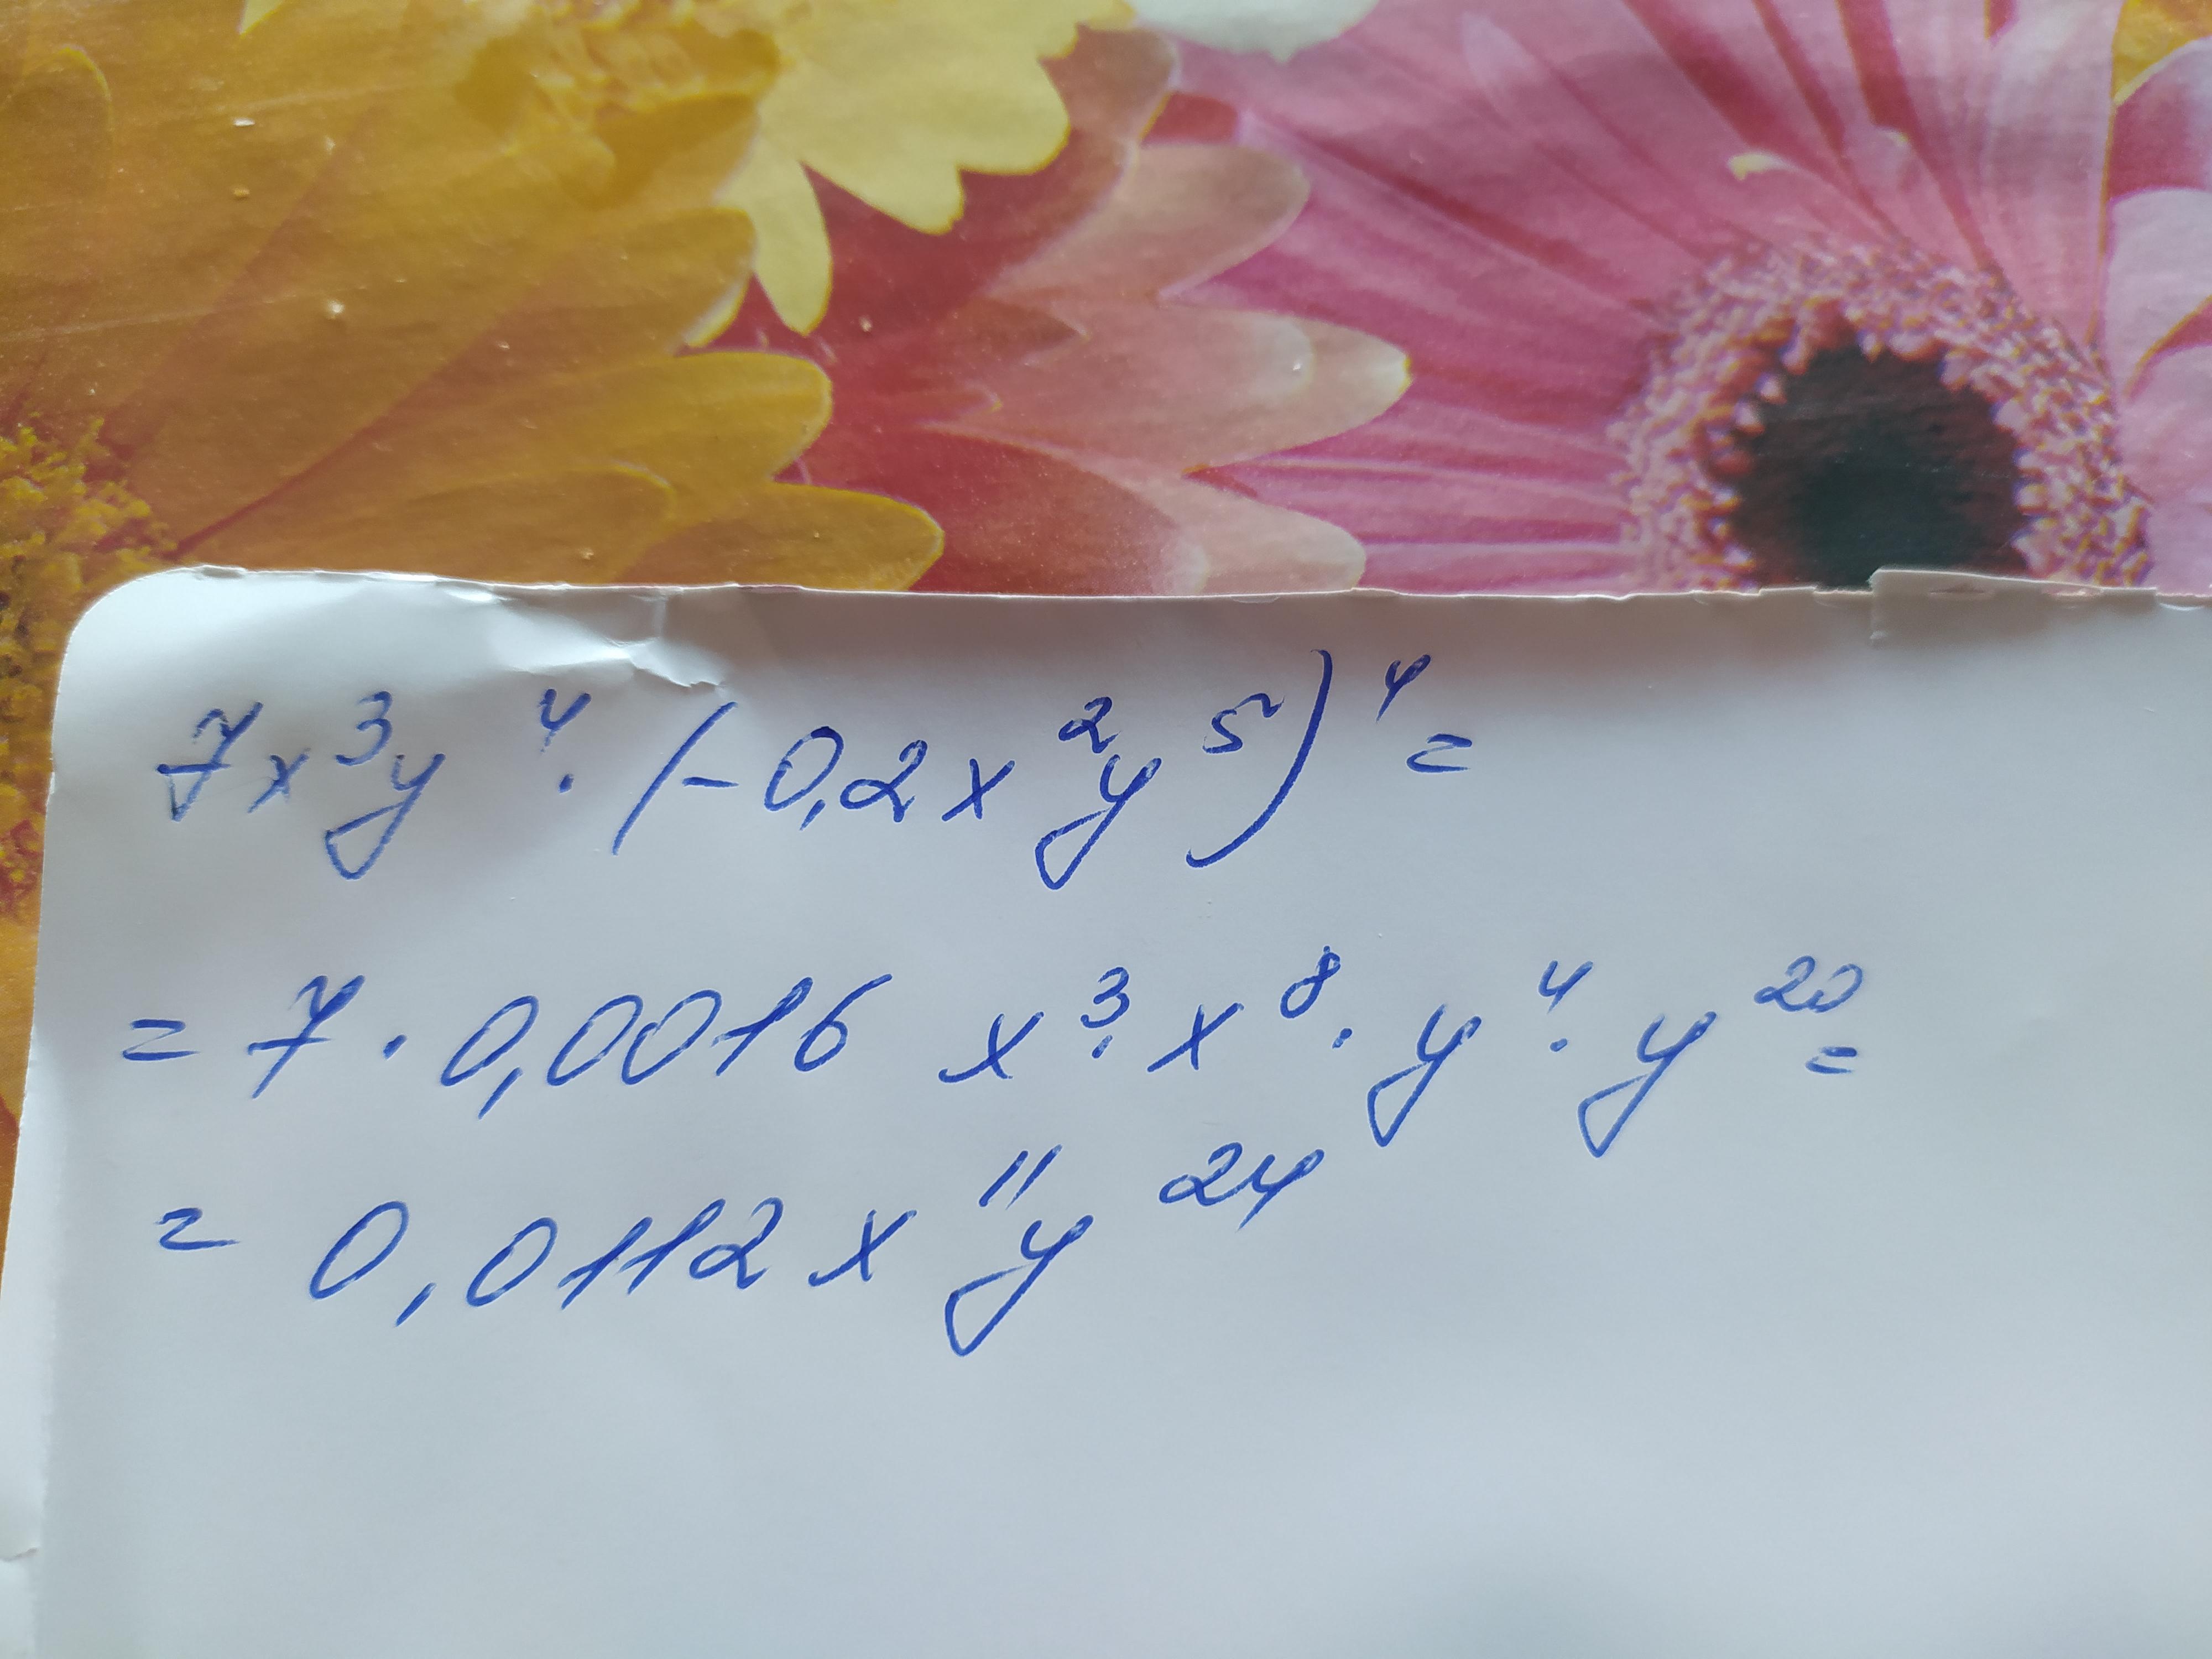 7x³y⁴·(-0,2x²y⁵)⁴=
=7·0,0016 x³·x⁸·y⁴·y²⁰=
=0,0112x¹¹y²⁴